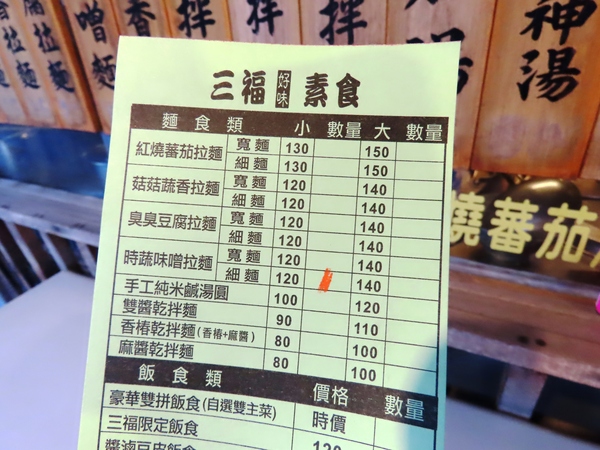 腐拉麵
噌麵
拌
拌
拌
湯
神湯
燒蕃茄
三福 好味 素食
麵食類 小 數量 大 數量
紅燒蕃茄拉麵 寬麵 130 150
細麵 130 150
菇菇蔬香拉麵 寬麵 120 140
細麵 120 140
臭臭豆腐拉麵 寬麵 120 140
細麵 120 140
時蔬味噌拉麵 寬麵 120 140
細麵 120 140
手工純米鹹湯圓 100 120
雙醬乾拌麵 90 110
香椿乾拌麵(香椿+麻醬) 80 100
麻醬乾拌麵 80 100
飯食類 價格 數量
豪華雙拼飯食(自選雙主菜) 時價
三福限定飯食
醬滷豆皮飯食 120